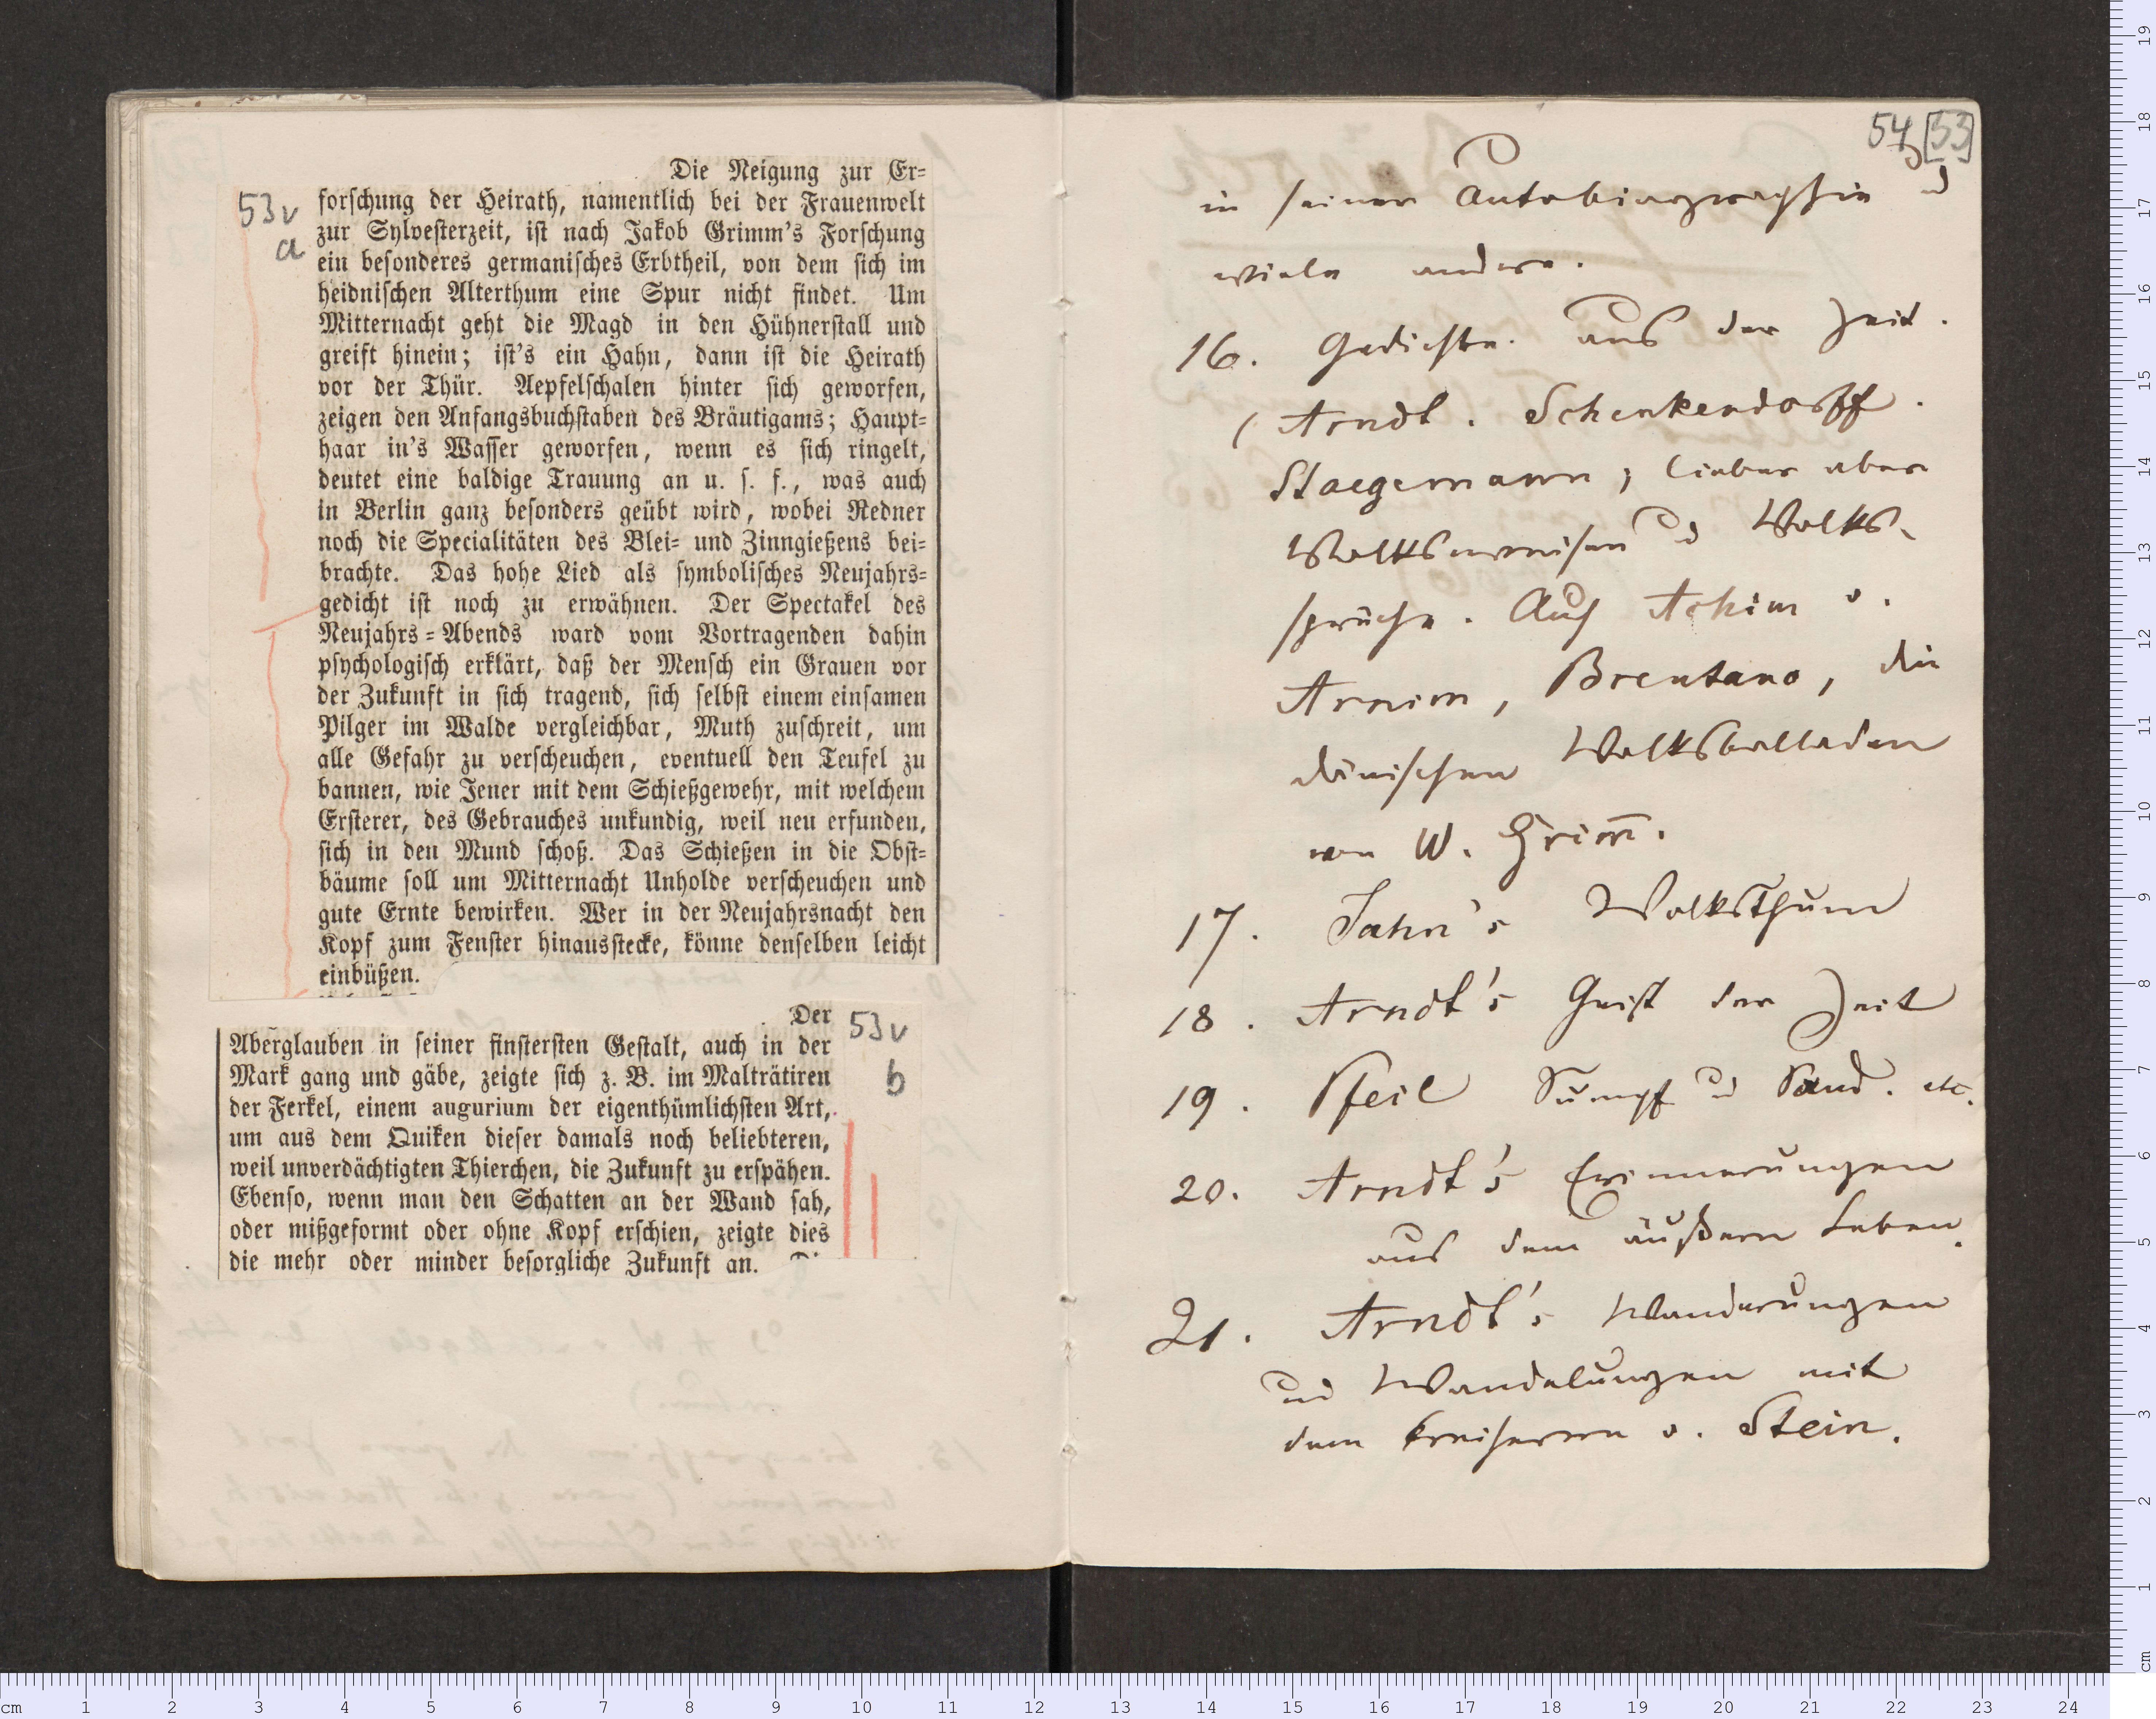 Die Neigung zur Er-
53v forschung der Heirath, namentlich bei der Frauenwelt
a zur Sylvesterzeit, ist nach Jakob Grimm's Forschung
ein besonderes germanisches Erbtheil, von dem sich im
heidnischen Alterthum eine Spur nicht findet. Um
Mitternacht geht die Magd in den Hühnerstall und
greift hinein; ist's ein Hahn, dann ist die Heirath
vor der Thür. Aepfelschalen hinter sich geworfen,
zeigen den Anfangsbuchstaben des Bräutigams; Haupt-
haar in's Wasser geworfen, wenn es sich ringelt,
deutet eine baldige Trauung an u. s. f., was auch
in Berlin ganz besonders geübt wird, wobei Redner
noch die Specialitäten des Blei- und Zinngießens bei-
brachte. Das hohe Lied als symbolisches Neujahrs-
gedicht ist noch zu erwähnen. Der Spectakel des
Neujahrs-Abends ward vom Vortragenden dahin
psychologisch erklärt, daß der Mensch ein Grauen vor
der Zukunft in sich tragend, sich selbst einem einsamen
Pilger im Walde vergleichbar, Muth zuschreit, um
alle Gefahr zu verscheuchen, eventuell den Teufel zu
bannen, wie Jener mit dem Schießgewehr, mit welchem
Ersterer, des Gebrauches unkundig, weil neu erfunden,
sich in den Mund schoß. Das Schießen in die Obst-
bäume soll um Mitternacht Unholde verscheuchen und
gute Ernte bewirken. Wer in der Neujahrsnacht den
Kopf zum Fenster hinausstecke, könne denselben leicht
einbüßen.
Der
53v
Aberglauben in seiner finstersten Gestalt, auch in der
Mark gang und gäbe, zeigte sich z. B. im Malträtiren
b
der Ferkel, einem augurium der eigenthümlichsten Art,
um aus dem Quiken dieser damals noch beliebteren,
weil unverdächtigten Thierchen, die Zukunft zu erspähen.
Ebenso, wenn man den Schatten an der Wand sah,
oder mißgeformt oder ohne Kopf erschien, zeigte dies
die mehr oder minder besorgliche Zukunft an.
54 [53]
in seiner Autobiographie u
viele andre.
16. Gedichte. aus der Zeit.
(Arndt. Schenkendorff.
Staegemann; lieber aber
Volksweisen u Volks-
sprüche. Auch Achim v.
Arnim, Brentano, die
dänischen Volksballaden
von W. Grim̅.
17. Jahn's Volksthum
18. Arndt's Geist der Zeit
19. Pfeil Sumpf u Sand. etc.
20. Arndt's Erinnerungen
aus dem äußern Leben.
21. Arndt's Wanderungen
und Wandelungen mit
dem Freiherrn v. Stein.